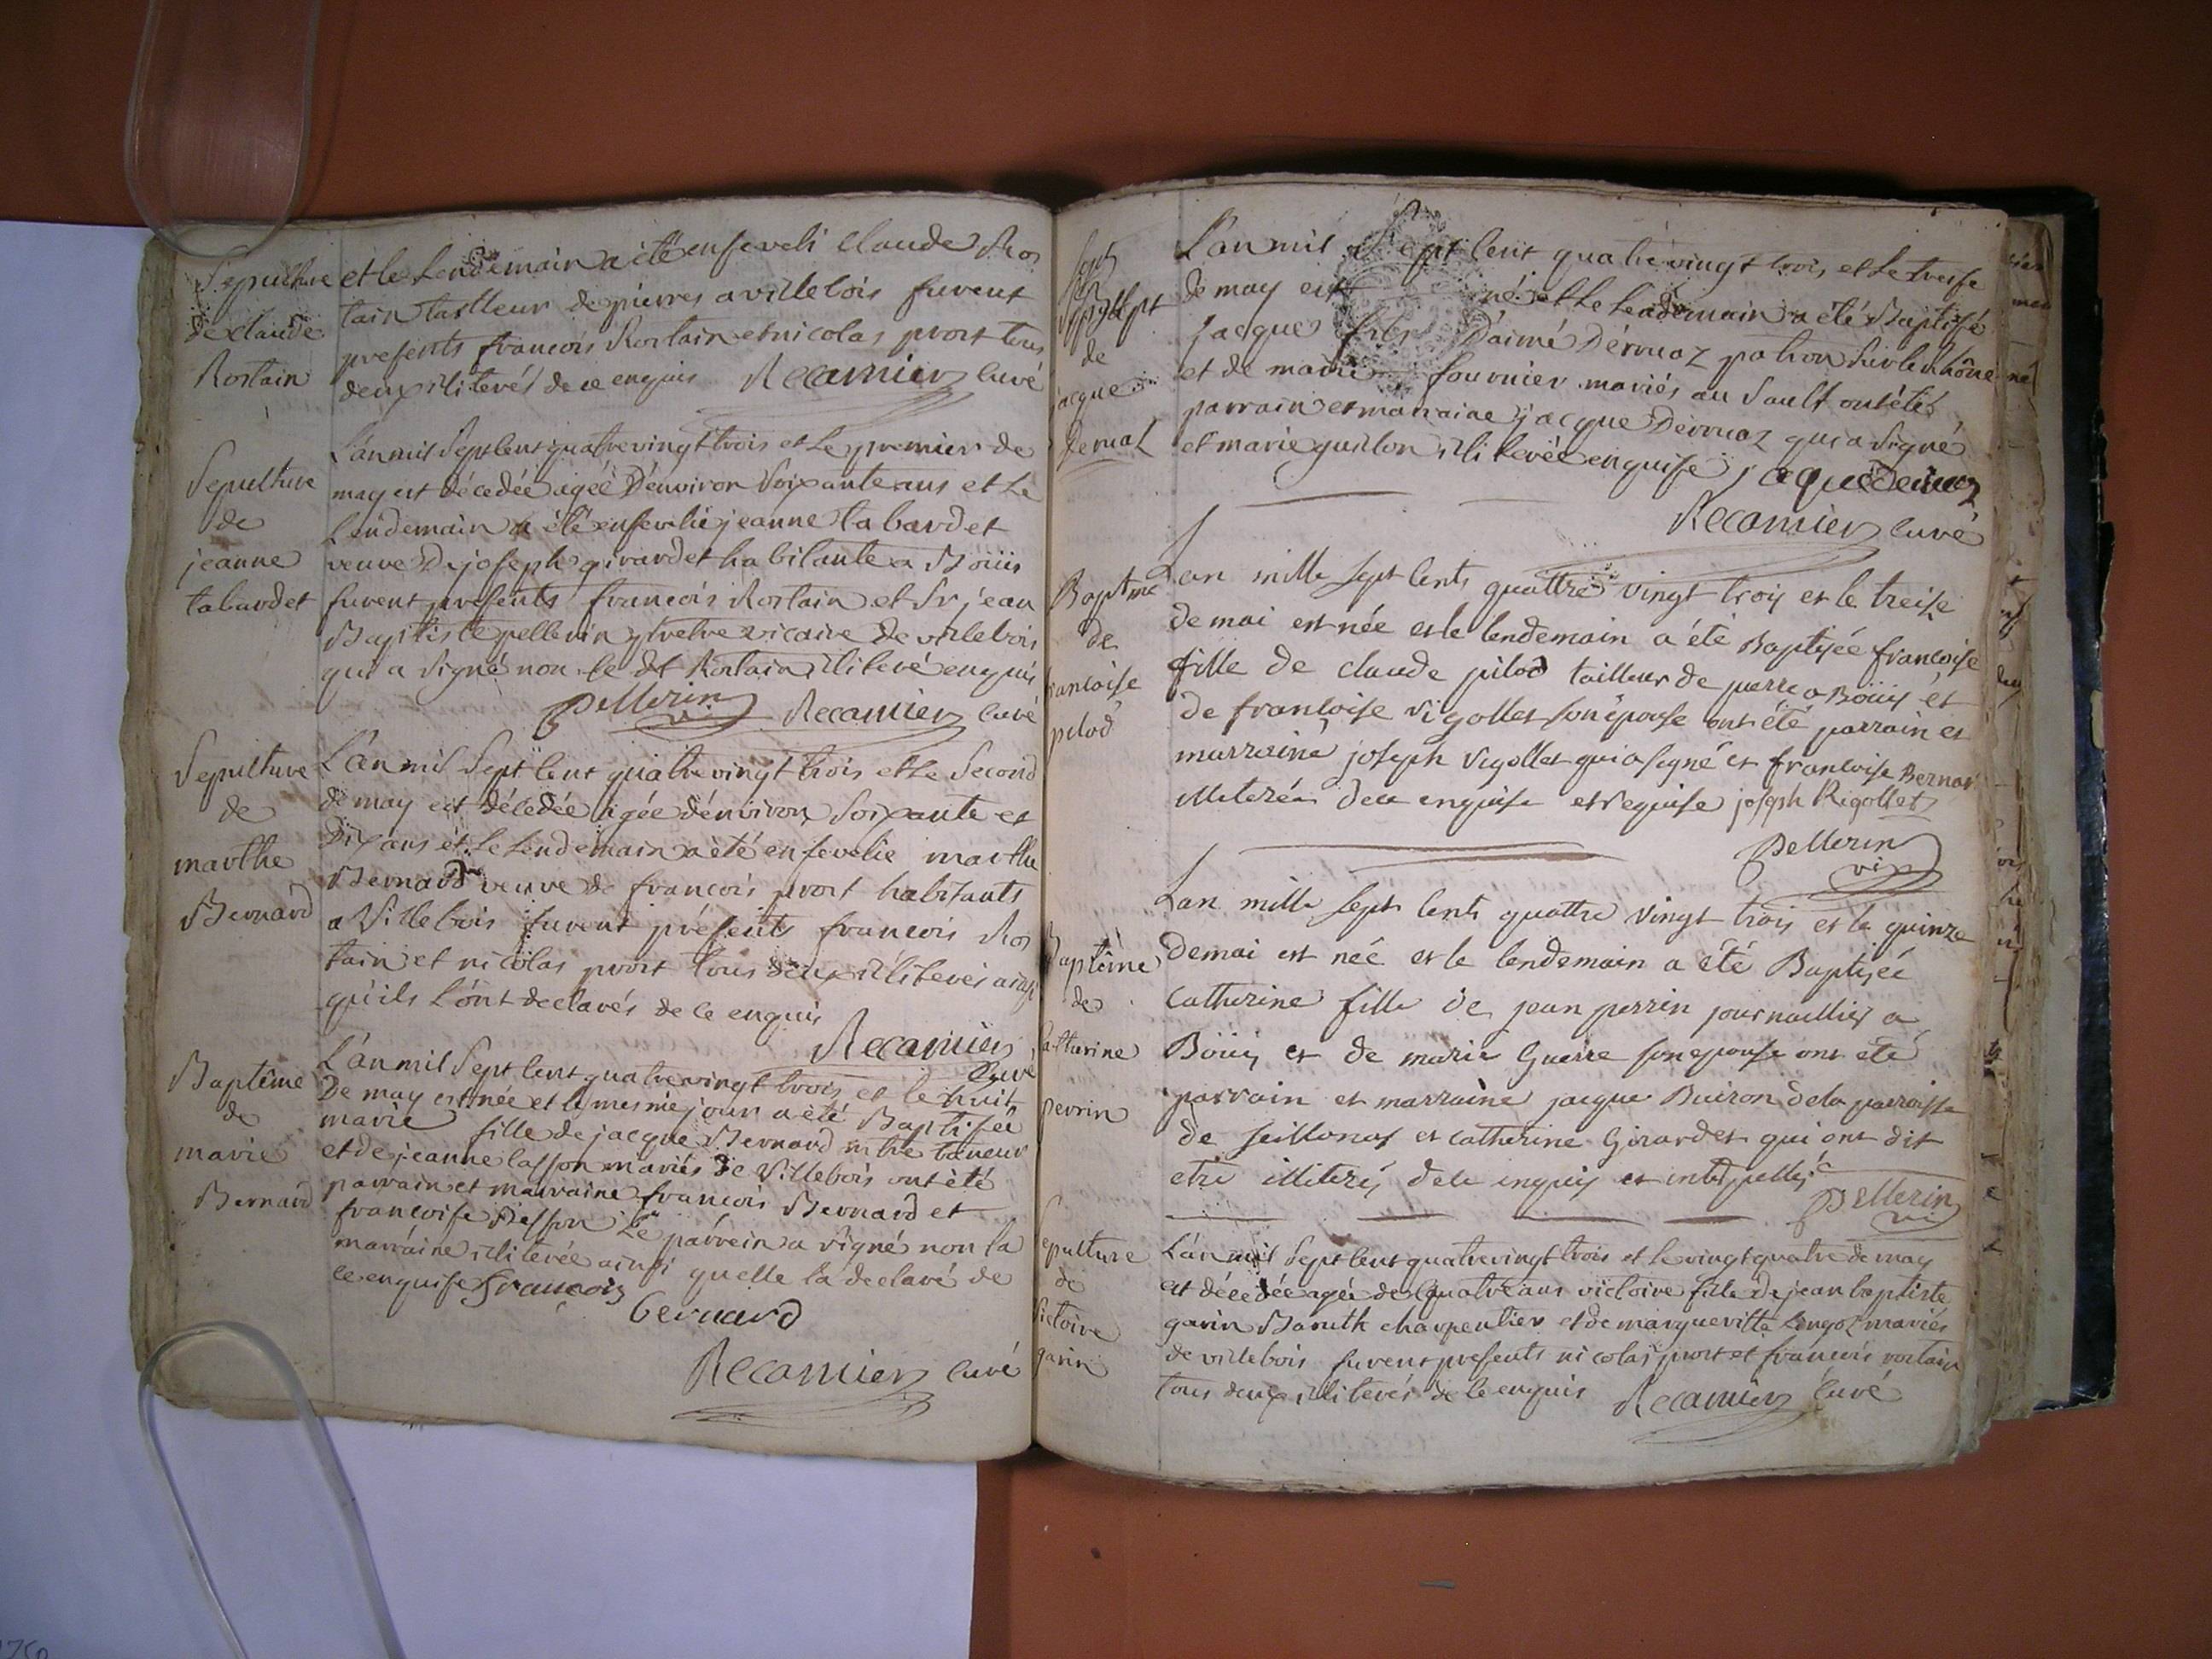 Sepulture
de claude
Rostain
et le Lendemain a été enseveli claude Ros
tain tailleur de pierres a villebois furent
presents francois Rostain et nicolas prost tous
deux illiterés de ce enquis Recamier curé
Sepulture
de
jeanne
tabardet
L'an mil Sept cent quatre vingt trois et Le premier de
may est décedée agée D'environ Soixante ans et Le
Lendemain a été ensevelie jeanne tabardet
veuve De joseph girardet habitante a Boüis
furent presents francois Rostain et Sr jean
Baptiste pellerin prêtre vicaire de villebois
qui a signé non le dt Rostain illiteré enquis
Pellerin vic Recamier curé
Sepulture
de
marthe
Bernard
L'an mil Sept cent quatre vingt trois et Le Second
de may est décedée agée d'environ Soixante et
Dix ans et Le Lendemain a été ensevelie marthe
Bernard veuve de francois prost habitants
a Villebois furent présents francois Ros
tain et nicolas prost tous deux illiterés ainsi
qu'ils L'ont declarés de ce enquis
Recamier
Curé
Baptême
de
marie
Bernard
L'an mil Sept cent quatre vingt trois et le huit
De may est née et le mesme jour a été Baptisée
marie fille de jacque Bernard mtre taneur
et de jeanne lasson mariés de Villebois ont été
parrain et marraine francois Bernard et
francoise Besson Le parrein a signé non la
marraine illiterée ainsi quelle la declaré de
ce enquise francois
bernard
Recamier curé
de
jacque
Dervaz
L'an mil Sept cent quatre vingt trois et Le treise
de may est né et Le Lendemain a été Baptisé
jacque fils D'aimé Dérvaz patron sur le rhône
et de marie fournier mariés au Sault ont été
parrain et marraine jacque Dervaz qui a signé
et marie guillon illiterée enquise jaque dervaz
Recamier curé
Baptme
de
francoise
pilod
Lan mille sept cents quattre vingt trois et le treise
de mai est née et le lendemain a été Baptisée francoise
fille de claude pilod tailleur de pierre a Boüis et
de francoise Vigollet son épouse ont été parrain et
marraine joseph Vigollet qui a signé et francoise Bernar
illiterée de ce enquise et requise joseph Rigollet
Pellerin
vic
Baptême
de
Catherine
perrin
Lan mille sept cents quattre vingt trois et le quinze
de mai est née et le lendemain a été Baptisée
Catherine fille de jean perrin journaillier a
Boüis et de marie Guerre son epouse ont été
parrain et marraine jacque Buiron de la parroisse
de seillonas et catherine Girardet qui ont dit
etre illiterés de ce enquis et interpellés
Pellerin
vic
Sepulture
de
Victoire
garin
L'an mil Sept cent quatre vingt trois et le vingt quatre de may
est décedée agée de quatre ans victoire fille de jean baptiste
garin Baruth charpentier et de marguerite Longoz mariés
de villebois furent presents nicolas prost et francois rostain
tous deux illiterés de ce enquis Recamier curé